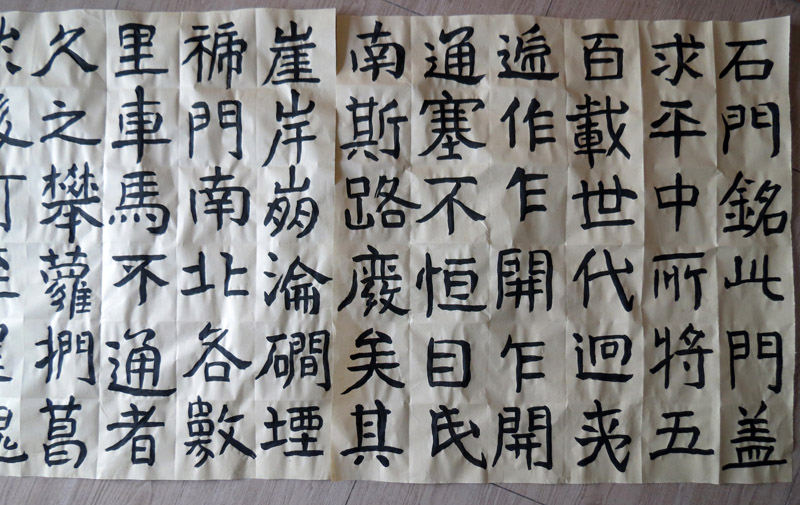 石門銘此門盖
求平中所將五
百載世代迥夷
遞作乍開乍開
通塞不恒自氏
南斯路廢矣其
崖岸崩淪磵堙
褅門南北各數
里車馬不通者
久之攀蘿捫葛